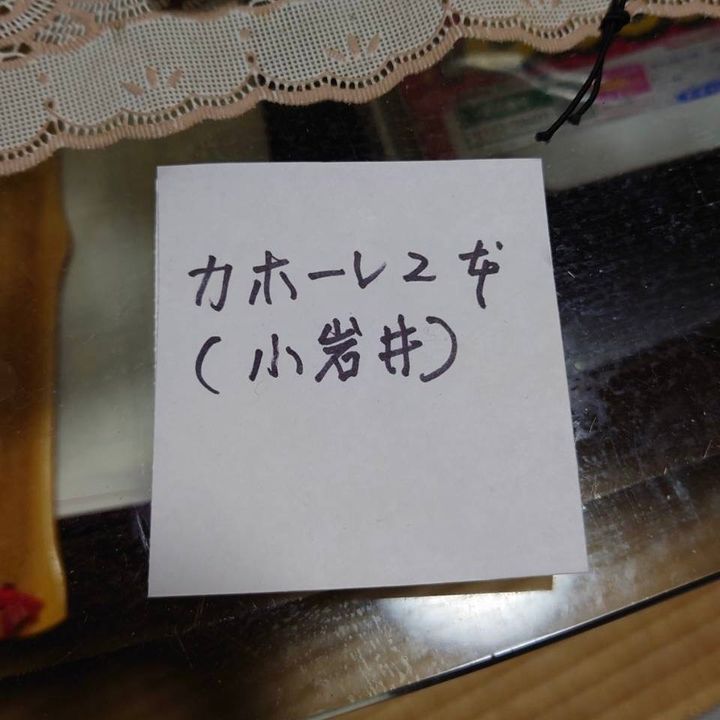 カホーレ2本
(小岩井)